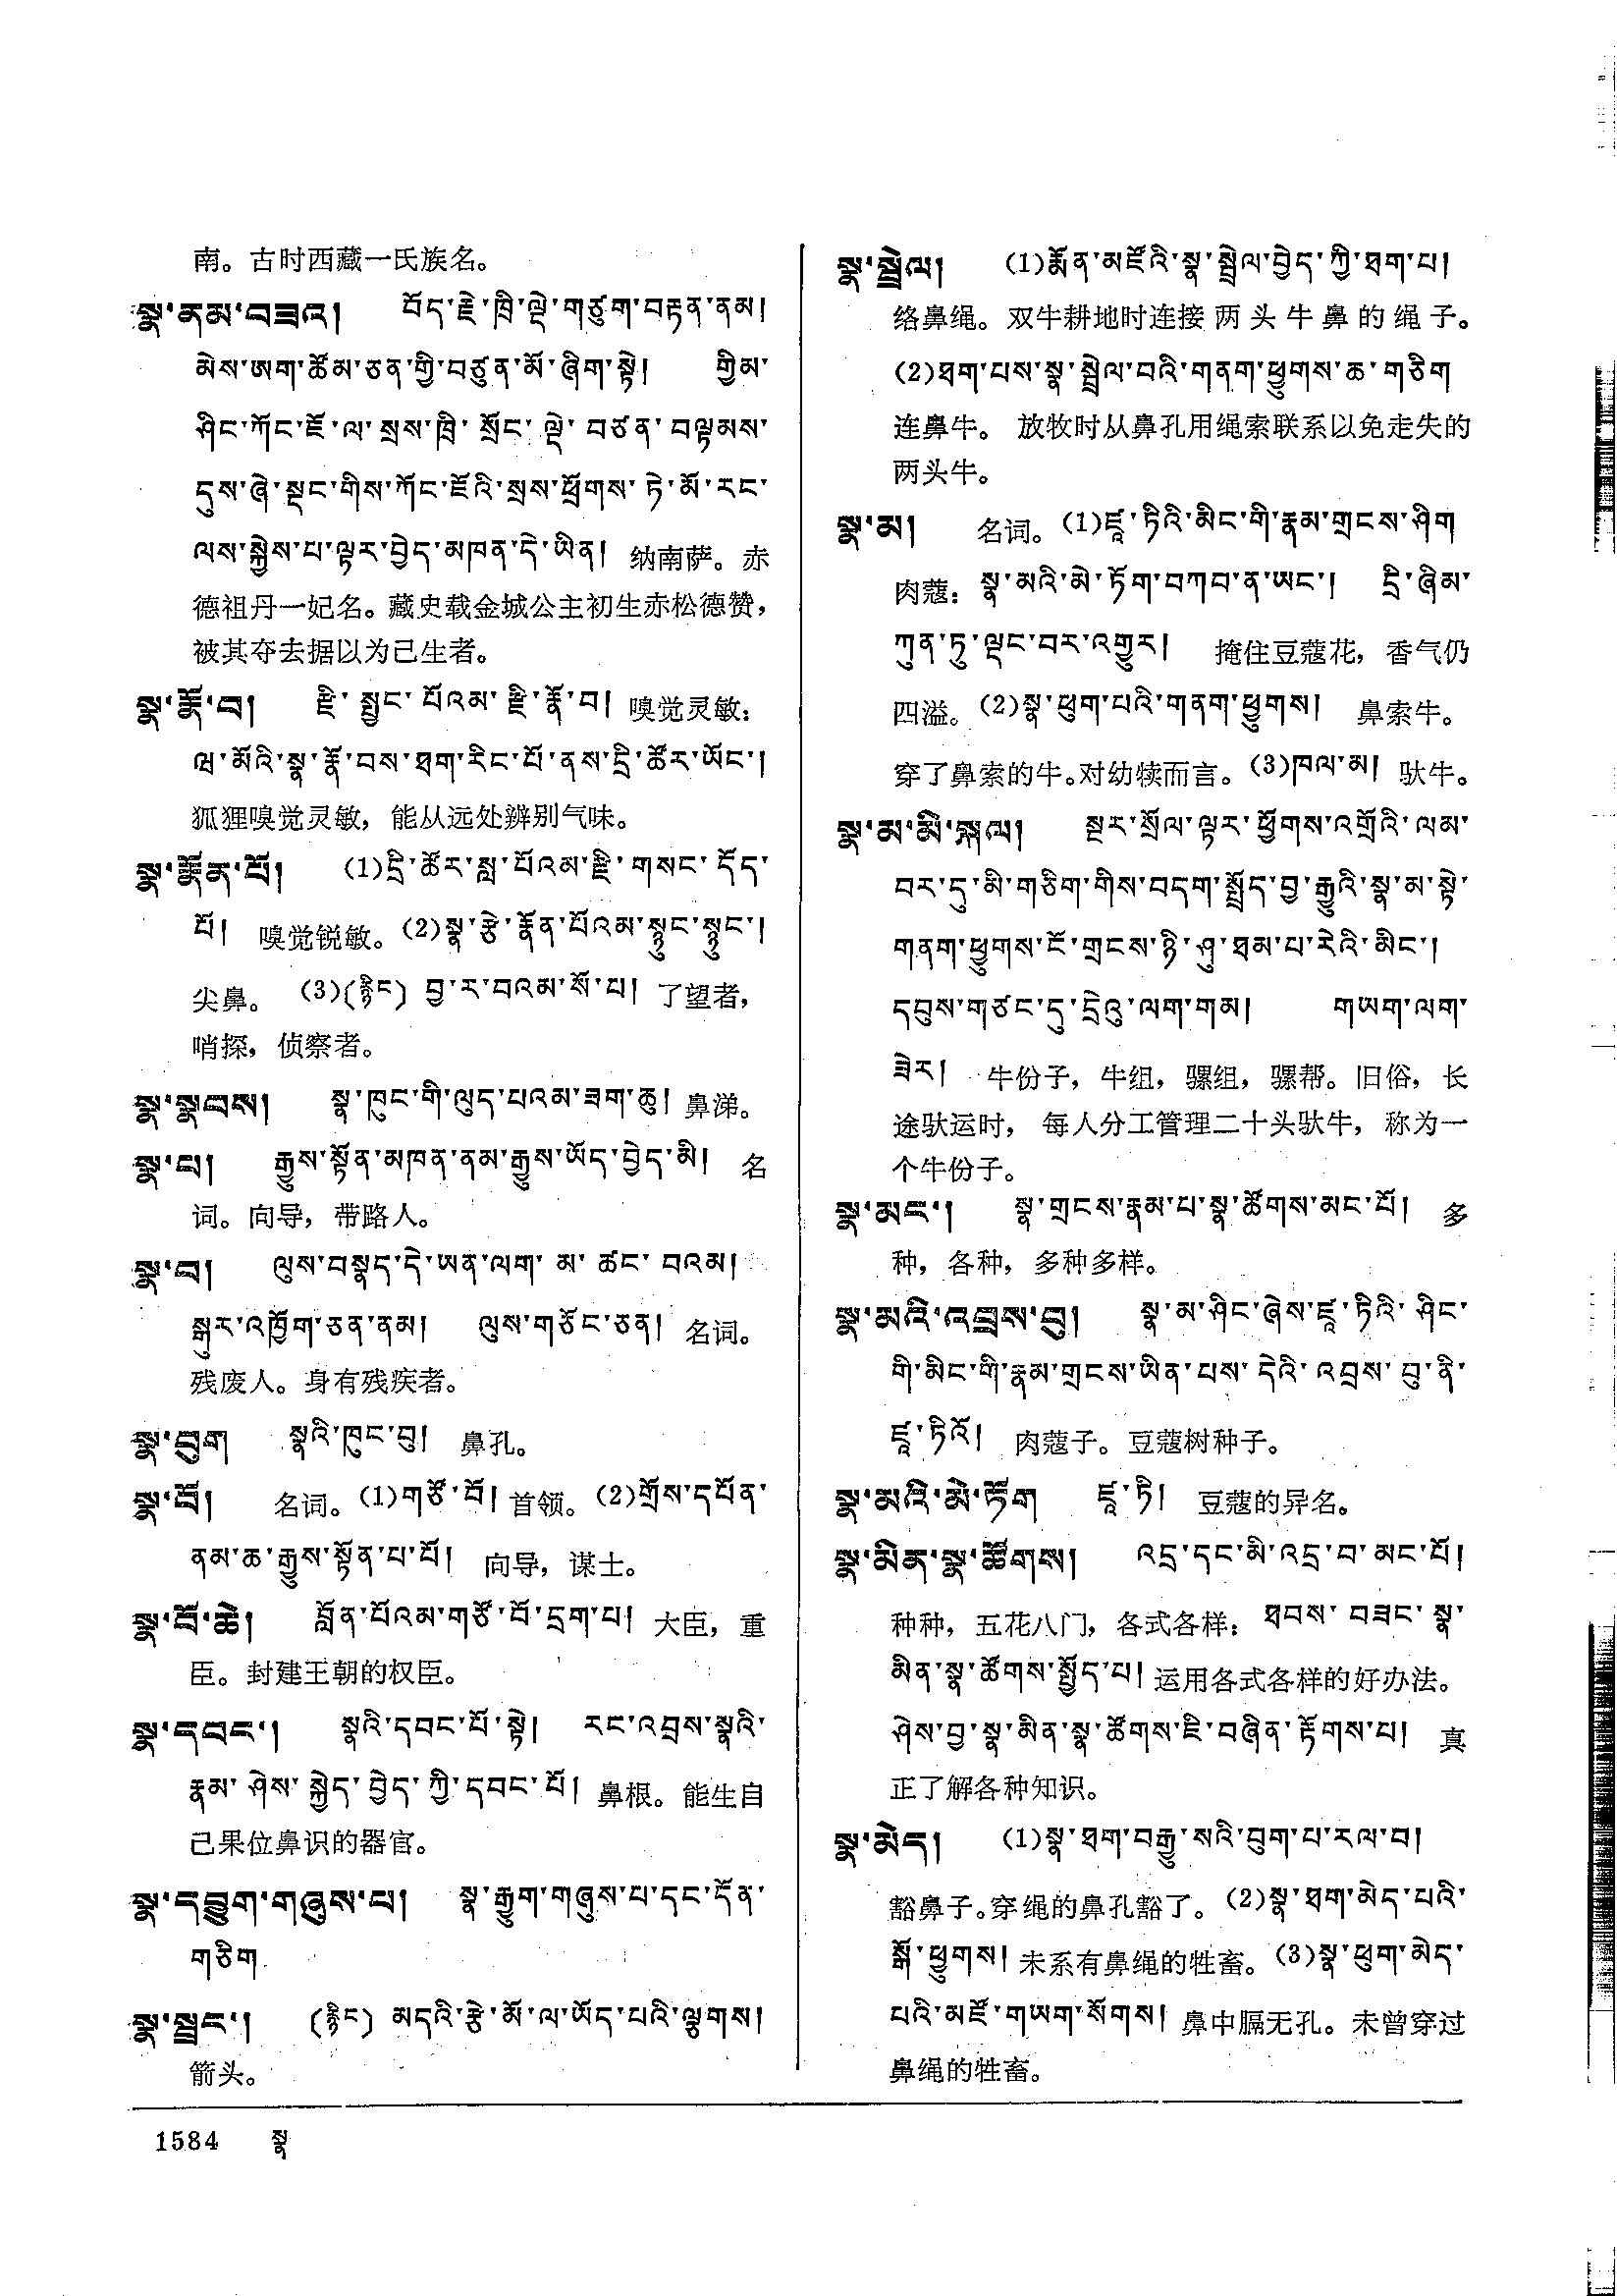 南。古时西藏一氏族名。
སྣ་ནམ་བཟའ། བོད་རྗེ་ཁྲི་ལྡེ་གཙུག་བརྟན་ནམ།
མེས་ཨག་ཚོམ་ཅན་གྱི་བཙུན་མོ་ཞིག་སྟེ། གྱིམ་
ཤིང་ཀོང་ཇོ་ལ་སྲས་ཁྲི་སྲོང་ལྡེ་བཙན་བལྟམས་
དུས་ཞེ་སྡང་གིས་ཀོང་ཇོའི་སྲས་ཕྲོགས་ཏེ་མོ་རང་
ལས་སྐྱེས་པ་ལྟར་བྱེད་མཁན་དེ་ཡིན། 纳南萨。赤
德祖丹一妃名。藏史载金城公主初生赤松德赞，
被其夺去据以为己生者。
སྣ་རྣོ་བ། རྫི་སྤྱང་པོའམ་རྫི་རྣོ་བ། 嗅觉灵敏：
ཝ་མོའི་སྣ་རྣོ་བས་ཐག་རིང་པོ་ནས་དྲི་ཚོར་ཡོང་།
狐狸嗅觉灵敏，能从远处辨别气味。
སྣ་རྣོན་པོ། (1)དྲི་ཚོར་སླ་པོའམ་རྫི་གསང་དོད་
པོ། 嗅觉锐敏。(2)སྣ་རྩེ་རྣོན་པོའམ་སྙུང་སྙུང་།
尖鼻。 (3)(རྙིང) བྱ་ར་བའམ་སོ་པ། 了望者，
哨探，侦察者。
སྣ་སྣབས། སྣ་ཁུང་གི་ལུད་པའམ་ཟག་ཆུ། 鼻涕。
སྣ་པ། རྒྱུས་སྟོན་མཁན་ནམ་རྒྱུས་ཡོད་བྱེད་མི། 名
词。向导，带路人。
སྣ་བ། ལུས་བསྣད་དེ་ཡན་ལག་མ་ཚང་བའམ།
སྒུར་འཁྱོག་ཅན་ནམ། ལུས་གཅོང་ཅན། 名词。
残废人。身有残疾者。
སྣ་བུག སྣའི་ཁུང་བུ། 鼻孔。
སྣ་བོ། 名词。(1)གཙོ་བོ། 首领。(2)གྲོས་དཔོན་
ནམ་ཆ་རྒྱུས་སྟོན་པ་པོ། 向导，谋士。
སྣ་བོ་ཆེ། བློན་པོའམ་གཙོ་བོ་དྲག་པ། 大臣，重
臣。封建王朝的权臣。
སྣ་དབང་། སྣའི་དབང་པོ་སྟེ། རང་འབྲས་སྣའི་
རྣམ་ཤེས་སྐྱེད་བྱེད་ཀྱི་དབང་པོ། 鼻根。能生自
己果位鼻识的器官。
སྣ་དབྱུག་གཞུས་པ། སྣ་རྒྱུག་གཞུས་པ་དང་དོན་
གཅིག
སྣ་སྦྲང་། (རྙིང) མདའི་རྩེ་མོ་ལ་ཡོད་པའི་ལྕགས།
箭头。
སྣ་སྦྲེལ། (1)རྨོན་མཛོའི་སྣ་སྦྲེལ་བྱེད་ཀྱི་ཐག་པ།
络鼻绳。双牛耕地时连接两头牛鼻的绳子。
(2)ཐག་པས་སྣ་སྦྲེལ་བའི་གནག་ཕྱུགས་ཆ་གཅིག
连鼻牛。 放牧时从鼻孔用绳索联系以免走失的
两头牛。
སྣ་མ། 名词。(1)ཛཱ་ཏིའི་མིང་གི་རྣམ་གྲངས་ཤིག
肉蔻：སྣ་མའི་མེ་ཏོག་བཀབ་ན་ཨང་། དྲི་ཞིམ་
ཀུན་ཏུ་ལྡང་བར་འགྱུར། 掩住豆蔻花，香气仍
四溢。(2)སྣ་ཕུག་པའི་གནག་ཕྱུགས། 鼻索牛。
穿了鼻索的牛。对幼犊而言。(3)ཁལ་མ། 驮牛。
སྣ་མ་མི་སྐལ། སྔར་སྲོལ་ལྟར་ཕྱོགས་འགྲོའི་ལམ་
བར་དུ་མི་གཅིག་གིས་བདག་སྤྲོད་བྱ་རྒྱུའི་སྣ་མ་སྟེ་
གནག་ཕྱུགས་ངོ་གྲངས་ཉི་ཤུ་ཐམ་པ་རེའི་མིང་།
དབུས་གཙང་དུ་དྲེའུ་ལག་གམ། གཡག་ལག་
ཟེར། 牛份子，牛组，骡组，骡帮。旧俗，长
途驮运时， 每人分工管理二十头驮牛，称为一
个牛份子。
སྣ་མང་། སྣ་གྲངས་རྣམ་པ་སྣ་ཚོགས་མང་པོ། 多
种，各种，多种多样。
སྣ་མའི་འབྲས་བུ། སྣ་མ་ཤིང་ཞེས་ཛཱ་ཏིའི་ཤིང་
གི་མིང་གི་རྣམ་གྲངས་ཡིན་པས་དེའི་འབྲས་བུ་ནི་
ཛཱ་ཏིའོ། 肉蔻子。豆蔻树种子。
སྣ་མའི་མེ་ཏོག ཛཱ་ཏི། 豆蔻的异名。
སྣ་མིན་སྣ་ཚོགས། འདྲ་དང་མི་འདྲ་བ་མང་པོ།
种种，五花八门，各式各样：ཐབས་བཟང་སྣ་
མིན་སྣ་ཚོགས་སྤྱོད་པ། 运用各式各样的好办法。
ཤེས་བྱ་སྣ་མིན་སྣ་ཚོགས་ཇི་བཞིན་རྟོགས་པ། 真
正了解各种知识。
སྣ་མེད། (1)སྣ་ཐག་བརྒྱུ་སའི་བུག་པ་རལ་བ།
豁鼻子。穿绳的鼻孔豁了。(2)སྣ་ཐག་མེད་པའི་
སྒོ་ཕྱུགས། 未系有鼻绳的牲畜。(3)སྣ་ཕུག་མེད་
པའི་མཛོ་གཡག་སོགས། 鼻中膈无孔。未曾穿过
鼻绳的牲畜。
1584 སྣ